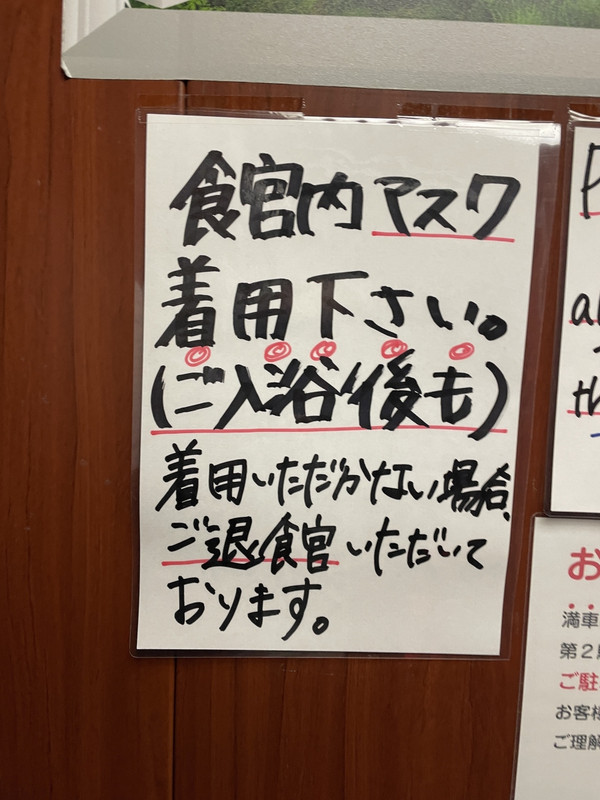 館内マスク
着用下さい。
(ご入浴後も)
着用いただかない場合、
ご退館いただいて
おります。
th
お
満車
第2
ご駐
お客様
ご理解